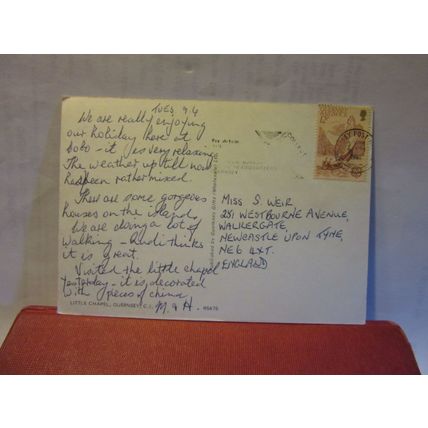 TUES. 9.6
We are really enjoying
our holiday here at
Bobo - it is very relaxing
The weather up till now
has been rather mixed.
There are some gorgeous
houses on the island
We are doing a lot of
walking - thinks
it is great.
Visited the little chapel
yesterday - it is decorated
with pieces of china
M & H.
LITTLE CHAPEL, GUERNSEY, C.I.
MISS S. WEIR
281 WESTBOURNE AVENUE,
WALKERGATE,
NEWCASTLE UPON TYNE,
NE6 4XT.
ENGLAND